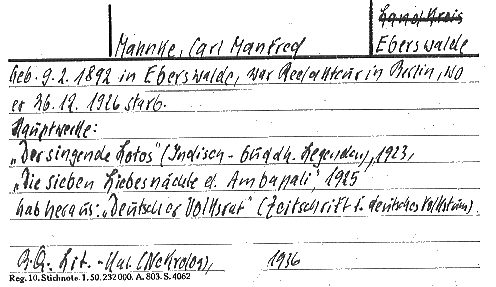 Landkreis
Mahnke, Carl Manfred
Eberswalde
Geb. 9.2.1892 in Eberswalde, war Redakteur in Berlin, wo
er 26.12.1926 starb.
Hauptwerke:
"Der singende Lotos" (Indisch-buddh. Legenden), 1923,
"Die sieben Liebesnächte d. Ambapali", 1925
hab heraus: "Deutscher Volksrat" (Zeitschrift f. deutsches Volkstum).
Lit.-Kal. (Nekrolog), 1936
Reg. 10. Stichnote. 1. 50. 232000. A. 803. S. 4062